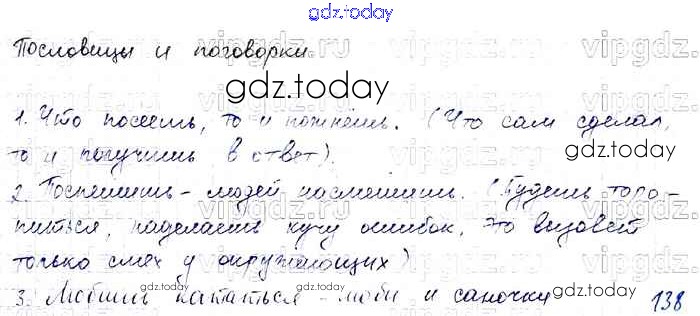 gdz.today
Пословицы и поговорки.
gdz.today
1. Что посеешь, то и пожнёшь. (Что сам сделал,
то и получишь в ответ).
gdz.today
2. Поспешишь - людей насмешишь. (Будешь торо-
питься, наделаешь кучу ошибок, это вызовет
только смех у окружающих)
gdz.today
3. Любишь кататься - люби и саночки 138
gdz.today